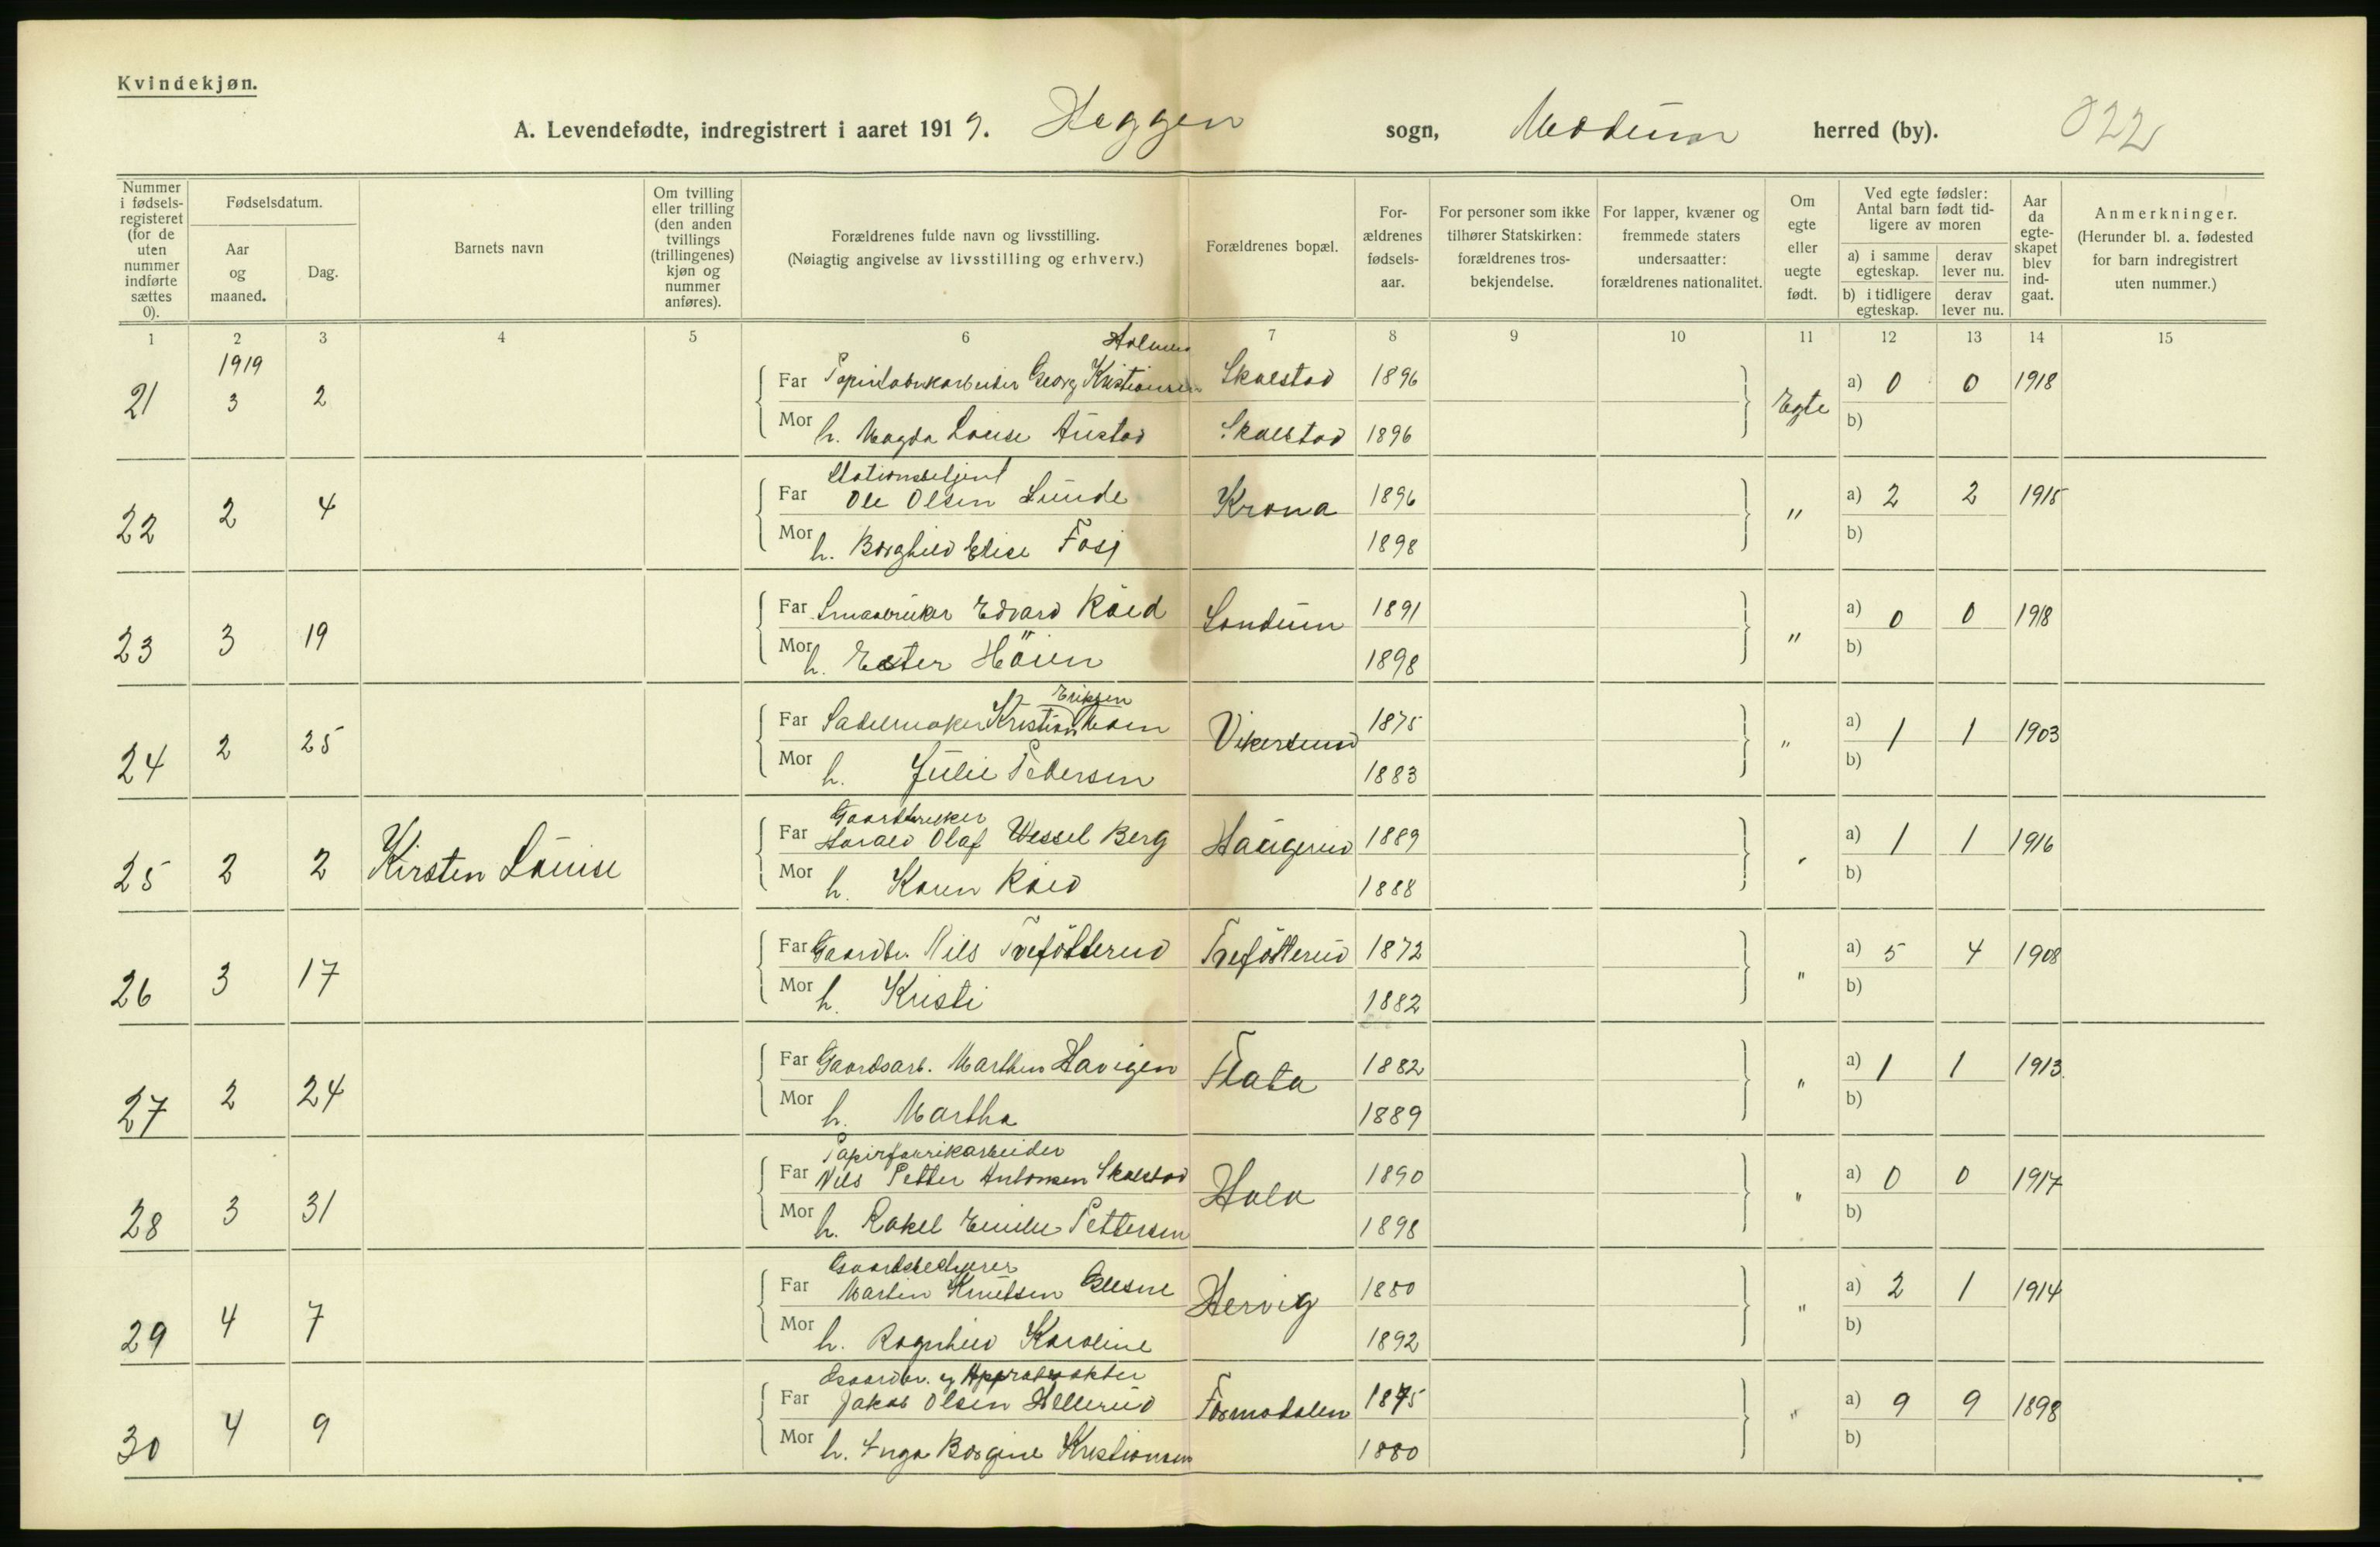 Kvindekjøn.
A. Levendefødte, indregistrert i aaret 1919. Heggen sogn, Modum herred (by). 022
Nummer i fødselsregisteret (for de uten nummer indførte sættes 0).
Fødselsdatum.
Aar og maaned.
Dag.
Barnets navn
Om tvilling eller trilling (den anden tvillings (trillingenes) kjøn og nummer anføres).
Forældrenes fulde navn og livsstilling.
(Nøiagtig angivelse av livsstilling og erhverv.)
Forældrenes bopæl.
Forældrenes fødselsaar.
For personer som ikke tilhører Statskirken: forældrenes trosbekjendelse.
For lapper, kvæner og fremmede staters undersaatter: forældrenes nationalitet.
Om egte eller uegte født.
Ved egte fødsler: Antal barn født tidligere av moren
a) i samme egteskap. derav lever nu.
b) i tidligere egteskap. derav lever nu.
Aar da egteskapet blev indgaat.
Anmerkninger.
(Herunder bl. a. fødested for barn indregistrert uten nummer.)
1 2 3 4 5 6 7 8 9 10 11 12 13 14 15
1919
Holmen
21 3 2 Far Papirfabrikarbeider Georg Kristiansen Skalstad 1896 Egte a) 0 0 1918
Mor h. Magda Louise Austad Skalstad 1896 b)
Stationsbetjent
22 2 4 Far Ole Olsen Lunde Krona 1896 " a) 2 2 1915
Mor h. Borghild Elise Fosj 1898 b)
23 3 19 Far Smaabruker Edvard Kåed Sondum 1891 " a) 0 0 1918
Mor h. Ester Höien 1898 b)
Eriksen
24 2 25 Far Sadelmaker Kristian Moen Vikersund 1875 " a) 1 1 1903
Mor h. Julie Pedersen 1883 b)
Gaardbruker
25 2 2 Kirsten Louise Far Harald Olaf Wessel Berg Haugerud 1889 " a) 1 1 1916
Mor h. Karen 1888 b)
26 3 17 Far Gaardbr. Nils Trefötterud Trefötterud 1872 " a) 5 4 1908
Mor h. Kristi 1882 b)
27 2 24 Far Gaardsarb. Marthin Havigen Flata 1882 " a) 1 1 1913.
Mor h. Martha 1889 b)
Papirfabrikarbeider
28 3 31 Far Nils Petter Antonsen Skalstad Hala 1890 " a) 0 0 1917
Mor h. Rakel Emilie Pettersen 1898 b)
Gaardsbestyrer
29 4 7 Far Martin Knutsen Glesne Hervig 1880 " a) 2 1 1914
Mor h. Ragnhild Karoline 1892 b)
Gaardbr. og
30 4 9 Far Jakob Olsen Hellerud Formodalen 1875 " a) 9 9 1898
Mor h. Inga Borgine Kristiansen 1880 b)